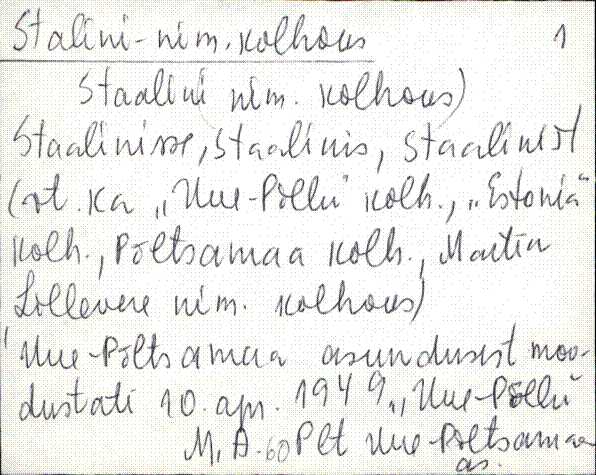 Stalini-nim. kolhoos 1
Staalini nim. kolhoos)
Staalinisse, Staalinis, Staalinist
(vt. ka „Uue-Põllu" kolh., „Estonia"
kolh., Põltsamaa kolh., Martin
Lillevere nim. kolhoos)
Uue-Põltsamaa asundusest moo-
dustati 10. apr. 1949 „Uue-Põllu
M. A. 60 Plt Uue-Põltsamaa
as.